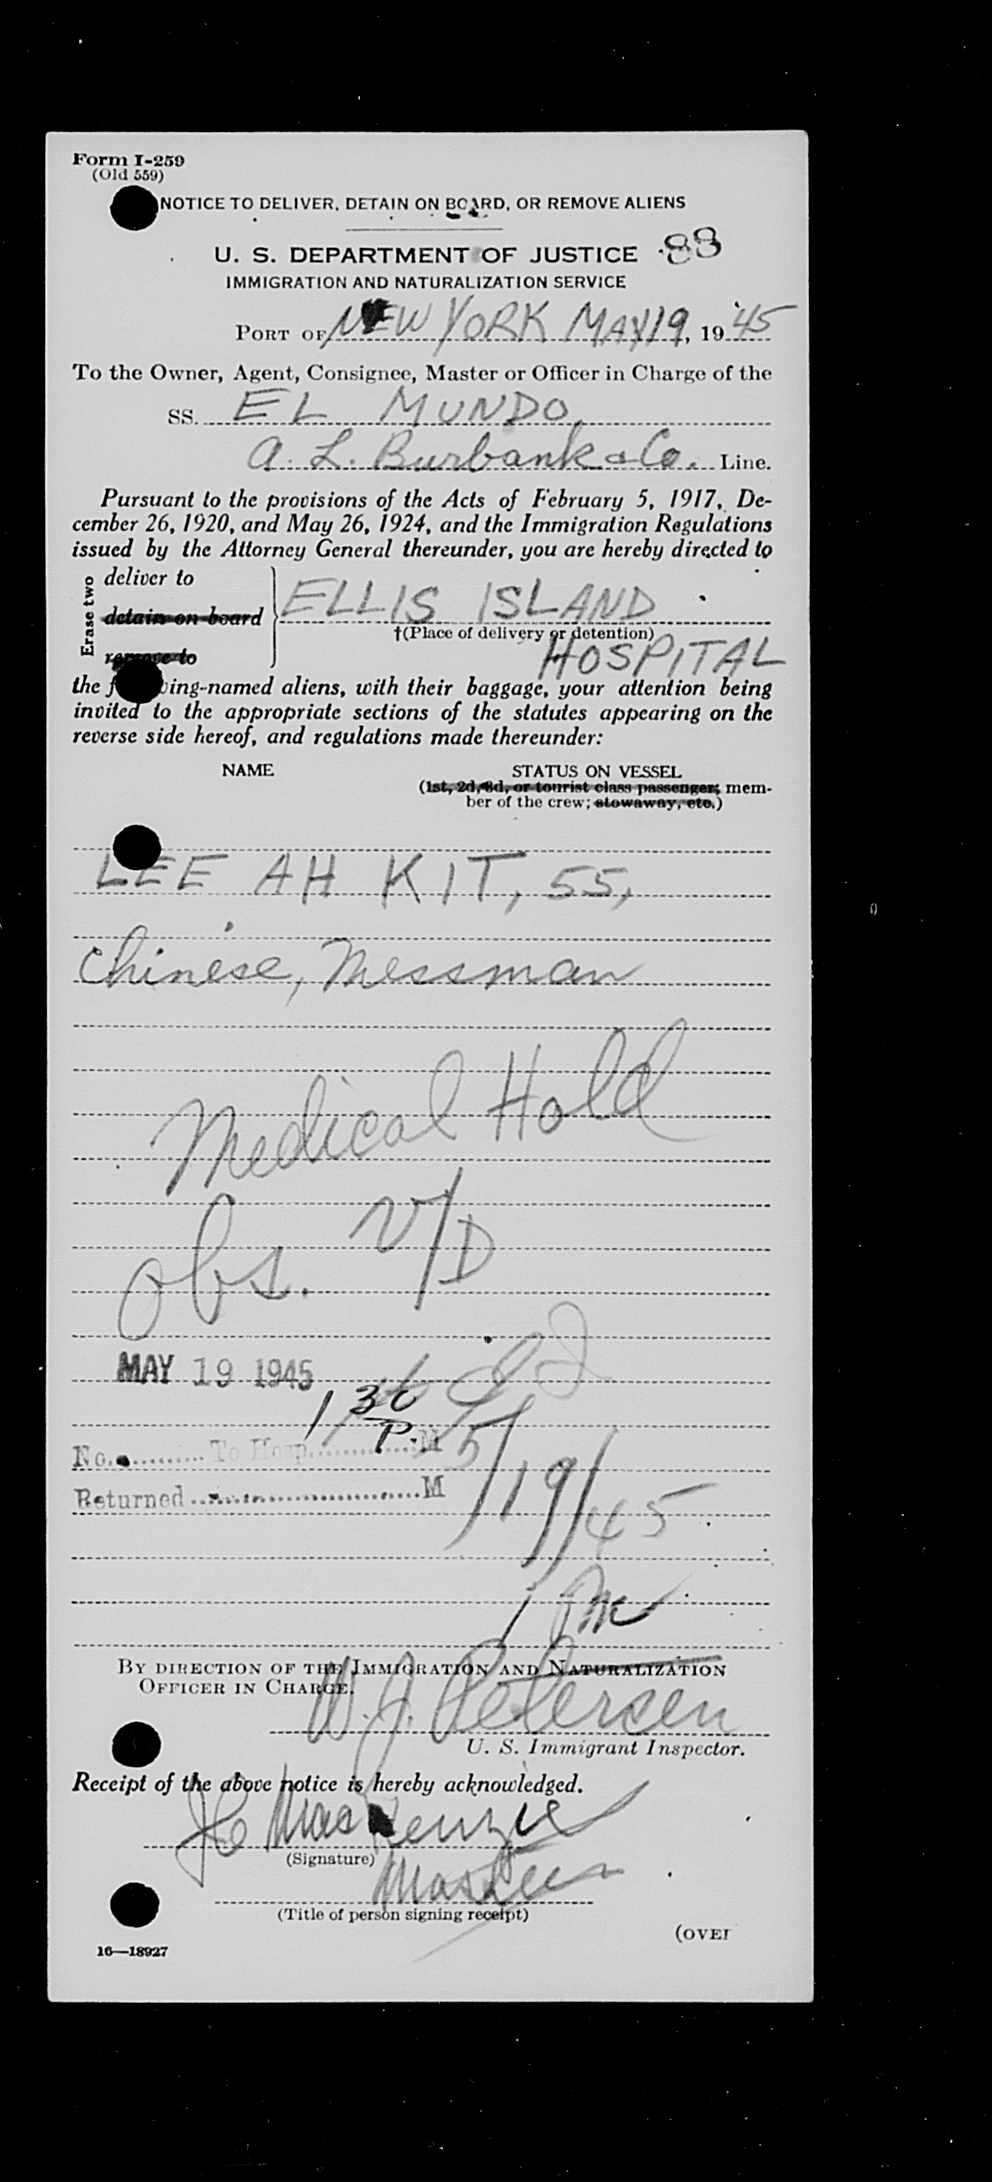 Form I-259
(Old 559)
NOTICE TO DELIVER, DETAIN ON BOARD, OR REMOVE ALIENS
U. S. DEPARTMENT OF JUSTICE 88
IMMIGRATION AND NATURALIZATION SERVICE
PORT OF NEW YORK MAY 19, 19 45
To the Owner, Agent, Consignee, Master or Officer in Charge of the
SS. EL MUNDO
A. L. Burbank & Co. Line.
Pursuant to the provisions of the Acts of February 5, 1917, De-
cember 26, 1920, and May 26, 1924, and the Immigration Regulations
issued by the Attorney General thereunder, you are hereby directed to
Erase two
deliver to
detain on board
remove to
ELLIS ISLAND
†(Place of delivery or detention)
HOSPITAL
the following-named aliens, with their baggage, your attention being
invited to the appropriate sections of the statutes appearing on the
reverse side hereof, and regulations made thereunder:
NAME STATUS ON VESSEL
(1st, 2d, 3d, or tourist class passenger; mem-
ber of the crew; stowaway, etc.)
LEE AH KIT, 55,
Chinese, Messman
Medical Hold
Obs. V/D
MAY 19 1945
1 30 P.
No. To Hosp. M
5/19/45
Returned M
By DIRECTION OF THE IMMIGRATION AND NATURALIZATION
OFFICER IN CHARGE.
W. J. Petersen
U. S. Immigrant Inspector.
Receipt of the above notice is hereby acknowledged.
MacKenzie
(Signature)
Master
(Title of person signing receipt)
(OVER
16—18927